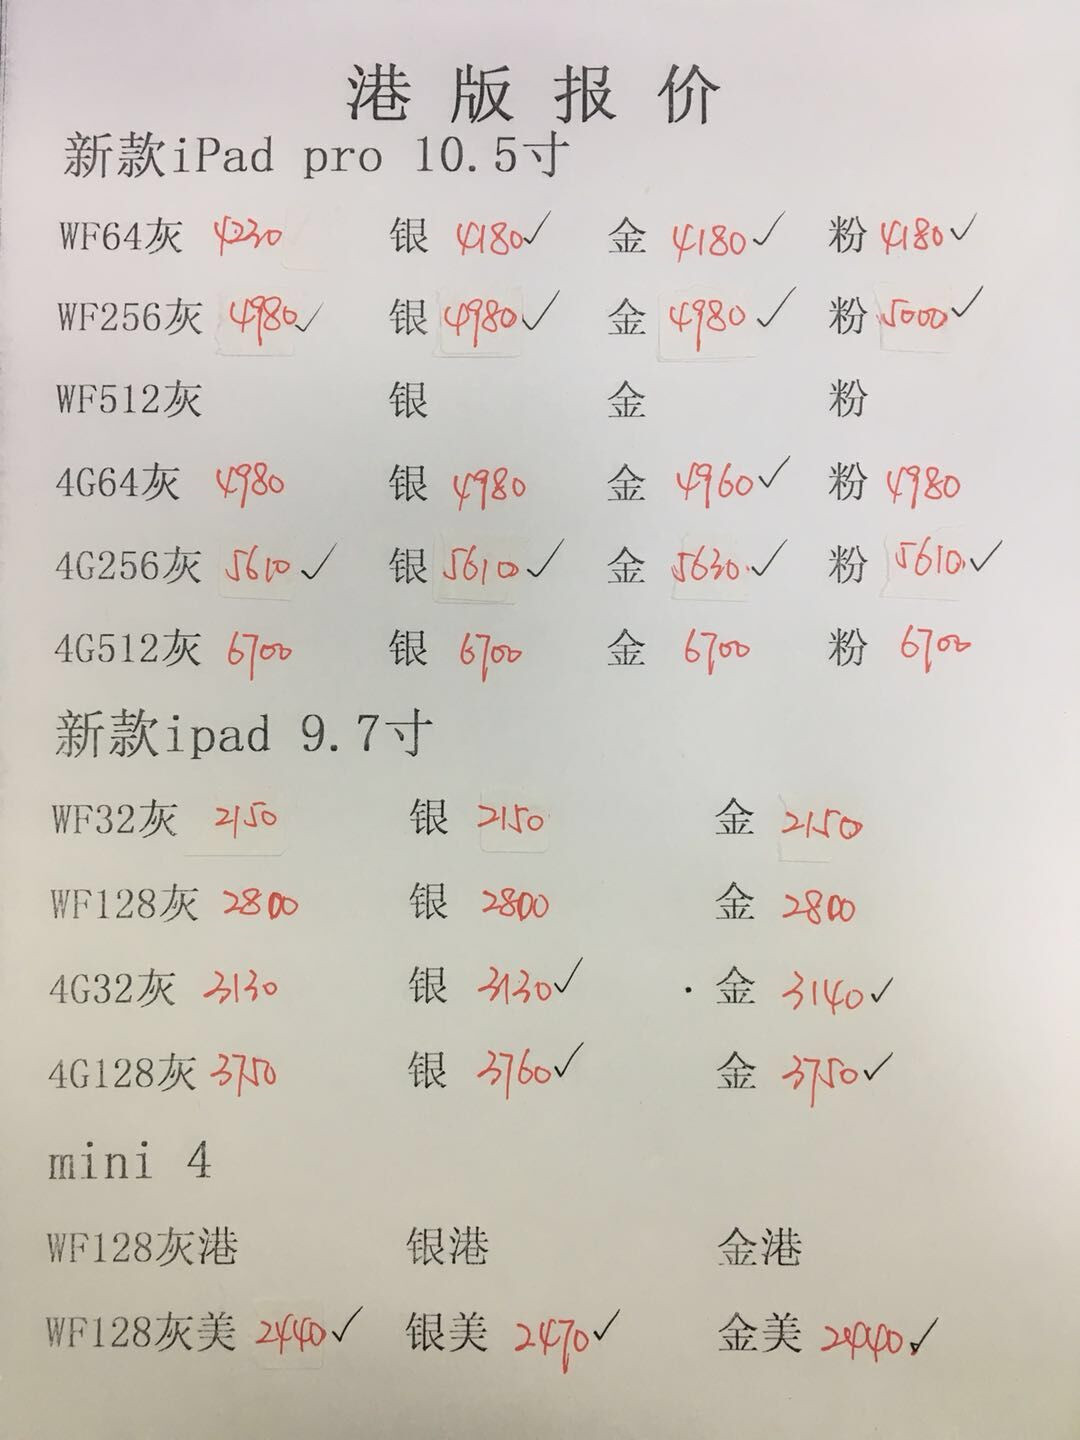 港版报价
新款iPad pro 10.5寸
WF64灰 4230 银 4180✓ 金 4180✓ 粉 4180✓
WF256灰 4980✓ 银 4980✓ 金 4980✓ 粉 5000✓
WF512灰 银 金 粉
4G64灰 4980 银 4980 金 4960✓ 粉 4980
4G256灰 5610✓ 银 5610✓ 金 5630✓ 粉 5610✓
4G512灰 6700 银 6700 金 6700 粉 6700
新款ipad 9.7寸
WF32灰 2150 银 2150 金 2150
WF128灰 2800 银 2800 金 2800
4G32灰 3130 银 3130✓ 金 3140✓
4G128灰 3750 银 3760✓ 金 3750✓
mini 4
WF128灰港 银港 金港
WF128灰美 2440✓ 银美 2470✓ 金美 2440✓